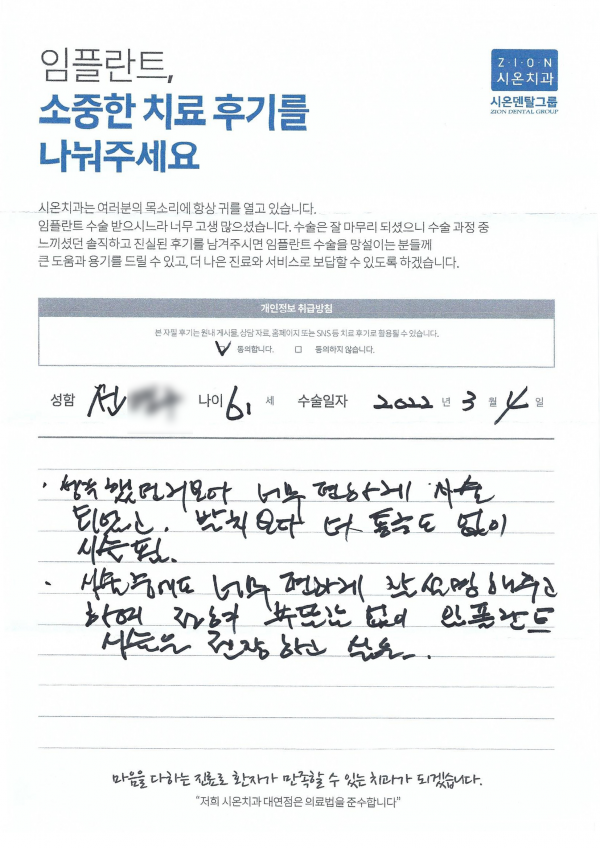 임플란트,
소중한 치료 후기를
나눠주세요
Z·I·O·N
시온치과
시온덴탈그룹
ZION DENTAL GROUP
시온치과는 여러분의 목소리에 항상 귀를 열고 있습니다.
임플란트 수술 받으시느라 너무 고생 많으셨습니다. 수술은 잘 마무리 되셨으니 수술 과정 중
느끼셨던 솔직하고 진실된 후기를 남겨주시면 임플란트 수술을 망설이는 분들께
큰 도움과 용기를 드릴 수 있고, 더 나은 진료와 서비스로 보답할 수 있도록 하겠습니다.
개인정보 취급방침
본 자필 후기는 원내 게시물, 상담 자료, 홈페이지 또는 SNS 등 치료 후기로 활용될 수 있습니다.
동의합니다. 동의하지 않습니다.
성함 전 나이 61 세 수술일자 2022 년 3 월 4 일
너무 편하게 시술
되었고. 발치보다 더 통증도 없이
시술됨.
시술중에도 너무 편하게 잘 설명해주고
하여 전혀 없이 임플란트
시술을 권장하고 싶음.
마음을 다하는 진료로 환자가 만족할 수 있는 치과가 되겠습니다.
"저희 시온치과 대연점은 의료법을 준수합니다"